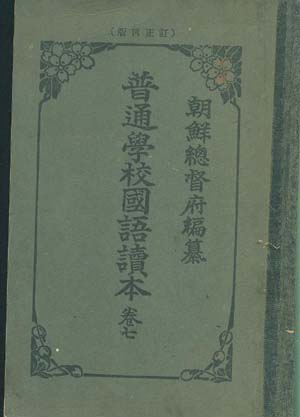 (訂正再版)
朝鮮總督府編纂
普通學校國語讀本 卷七